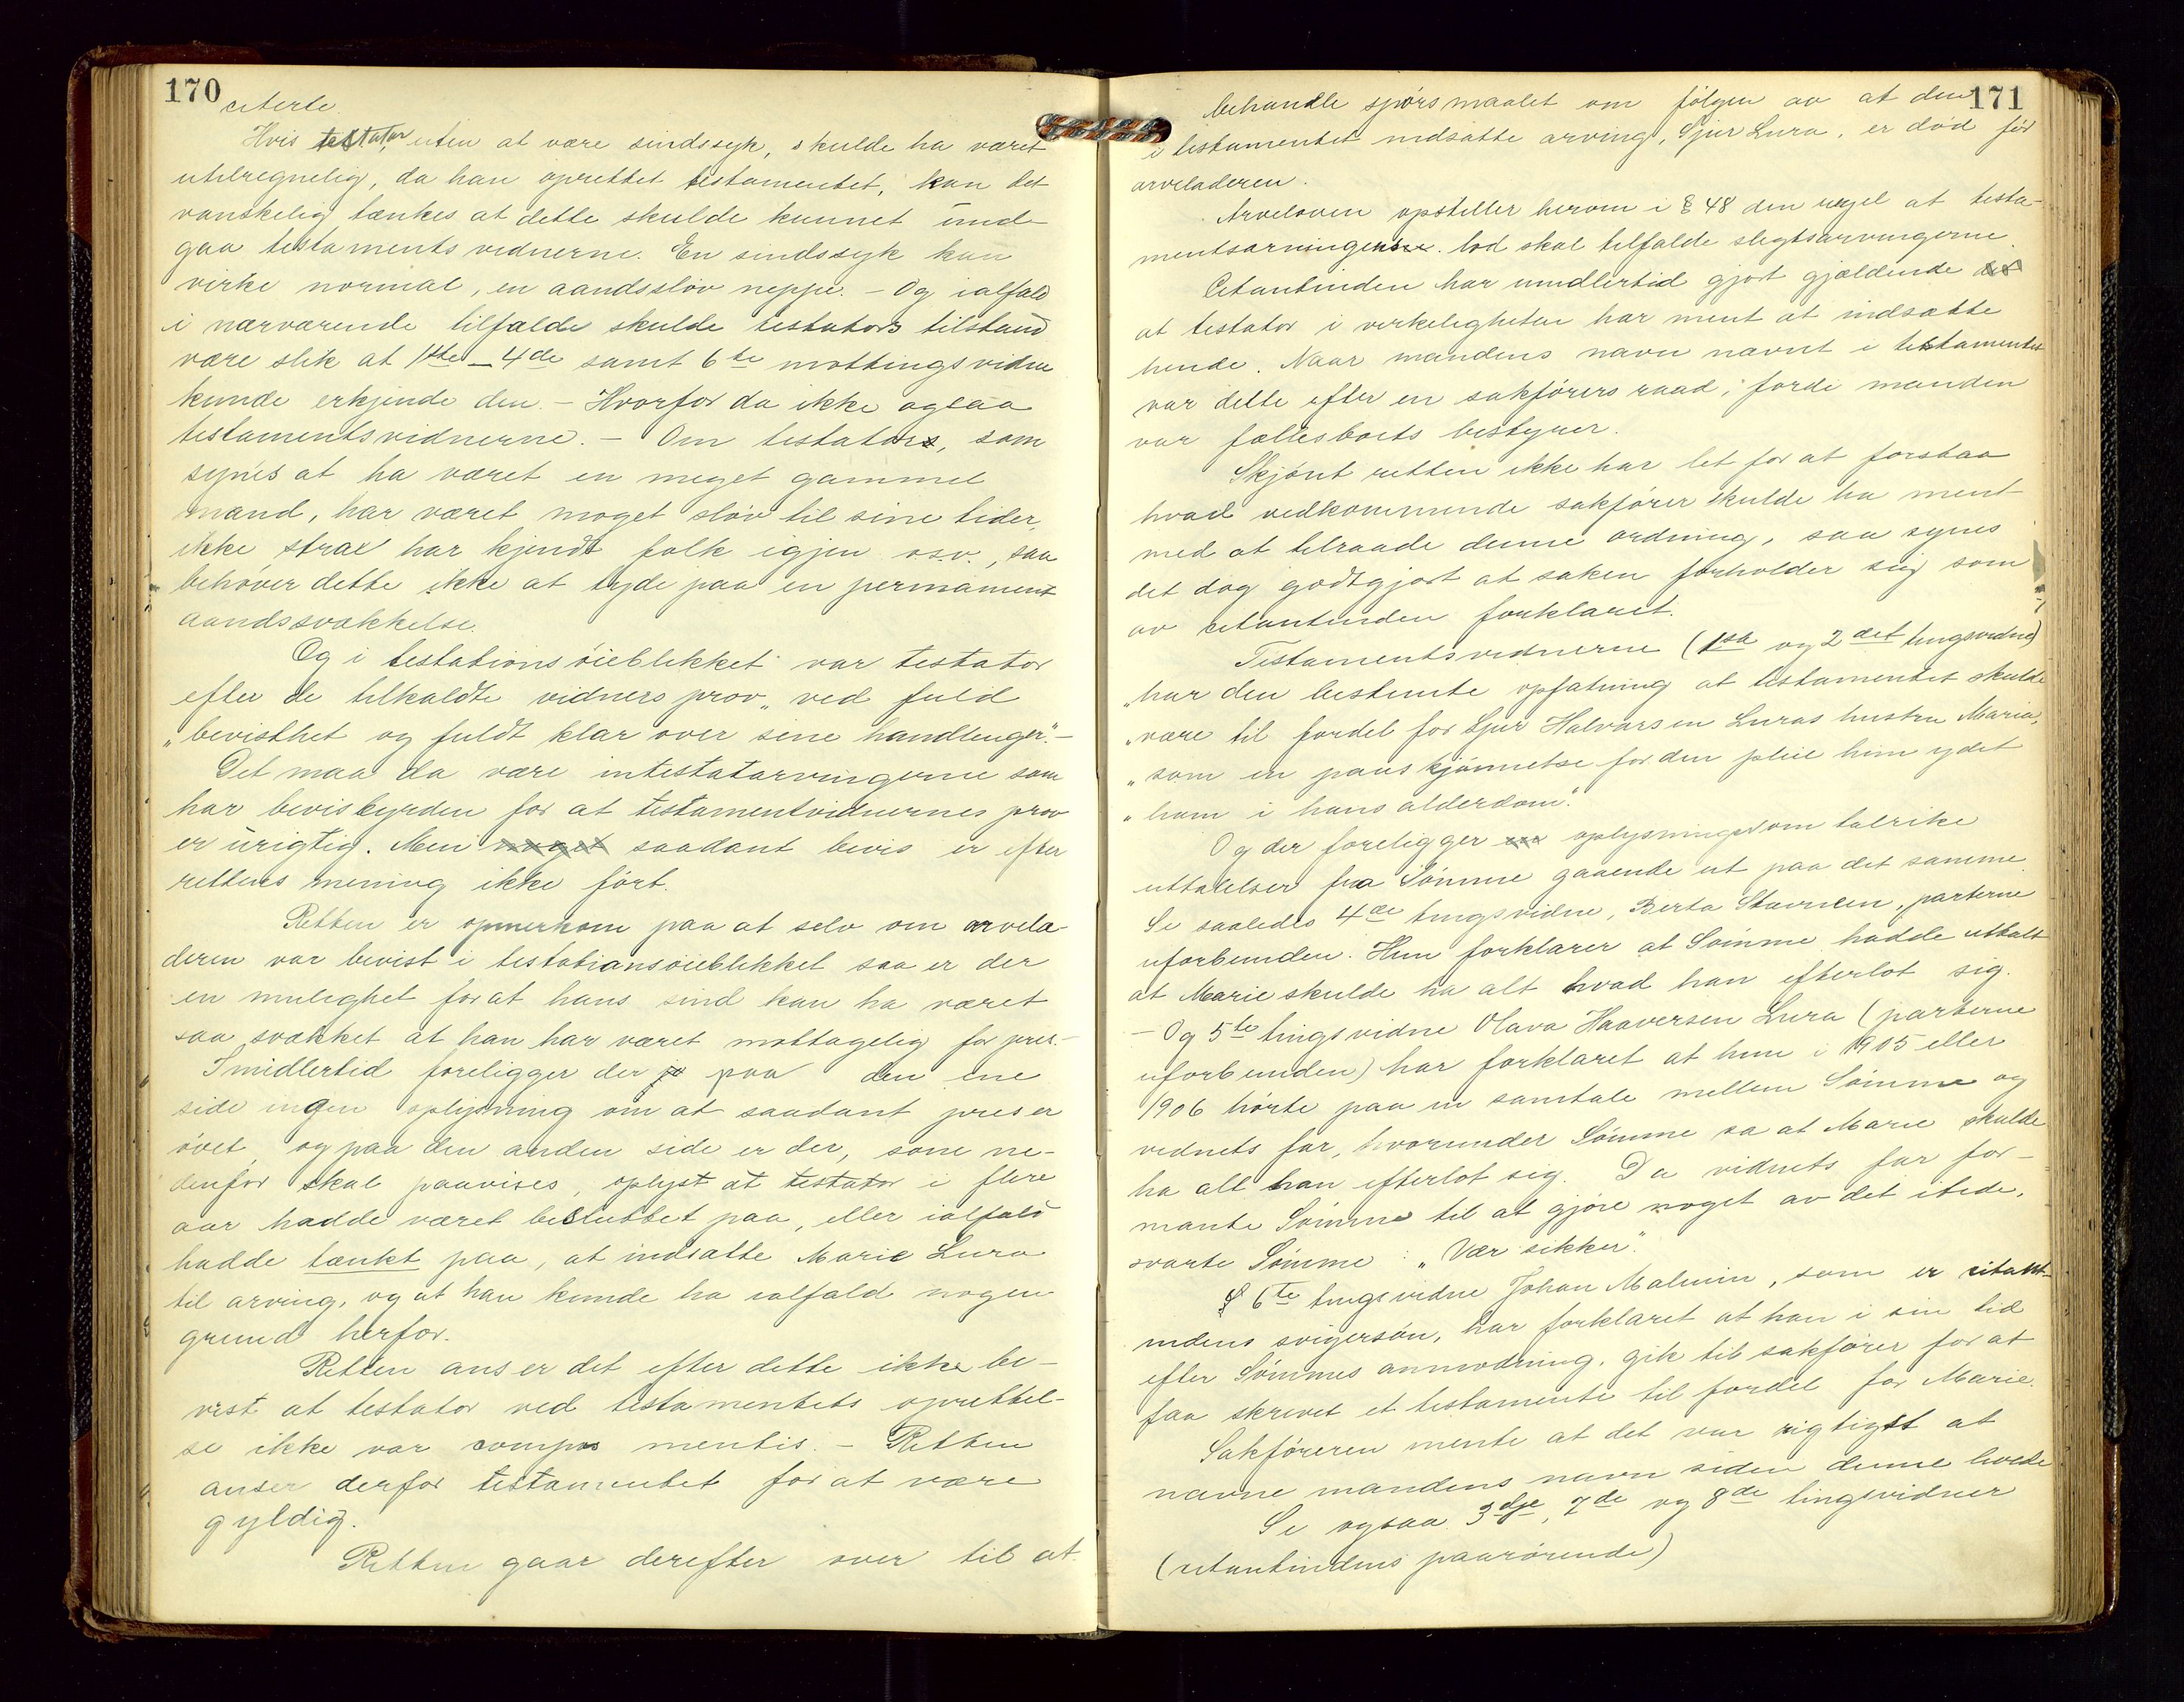 170
citerte.
Hvis testator, uten at være sindssyk, skulde ha været
utilregnelig, da han oprettet testamentet, kan det
vanskelig tænkes at dette skulde kunnet und-
gaa testamentsvidnerne. En sindssyk kan
virke normal, en aandssløv neppe. – Og ialfald
i nærværende tilfælde skulde testators tilstand
være slik at 1ste – 4de samt 6te mottingsvidne
kunde erkjende den. – Hvorfor da ikke ogsaa
testamentsvidnerne. – Om testator, som
synes at ha været en meget gammel
mand, har været meget sløv til sine tider,
ikke strax har kjendt folk igjen o.s.v., saa
behøver dette ikke at tyde paa en permanent
aandssvækkelse.
Og i testationsøieblikket var testator
efter de tilkaldte vidners prov „ved fuld
„bevisthet og fuldt klar over sine handlinger”. –
Det maa da være intestatarvingerne som
har bevisbyrden for at testamentvidnernes prov
er urigtig. Men noget saadant bevis er efter
rettens mening ikke ført.
Retten er opmerksom paa at selv om arvela-
deren var bevist i testationsøieblikket saa er der
en mulighet for at hans sind kan ha været
saa svækket at han har været mottagelig for pres. –
Imidlertid foreligger der jo paa den ene
side ingen oplysning om at saadant pres er
øvet, og paa den anden side er der, som ne-
denfor skal paavises, oplyst at testator i flere
aar hadde været besluttet paa, eller ialfald
hadde tænkt paa, at indsætte Marie Lura
til arving, og at han kunde ha ialfald nogen
grund herfor.
Retten anser det efter dette ikke be-
vist at testator ved testamentets oprettel-
se ikke var compos mentis. – Retten
anser derfor testamentet for at være
gyldig.
Retten gaar derefter over til at
171
behandle spørsmaalet om følgen av at den
i testamentet indsatte arving, Sjur Lura, er død før
arveladeren.
Arveloven opstiller herom i § 48 den regel at testa-
mentsarvingens lod skal tilfalde slegtsarvingerne.
Citantinden har imidlertid gjort gjældende det
at testator i virkeligheten har ment at indsætte
hende. Naar mandens navn nævnt i testamentet
var dette efter en sakførers raad, fordi manden
var fællesboets bestyrer.
Skjønt retten ikke har let for at forstaa
hvad vedkommende sakfører skulde ha ment
med at tilraade denne ordning, saa synes
det dog godtgjort at saken forholder sig som
av citantinden forklaret.
Testamentsvidnerne (1ste og 2det tingsvidne)
„har den bestemte opfatning at testamentet skulde
„være til fordel for Sjur Halvarsen Luras hustru Marie,
„som en paaskjønnelse for den pleie hun ydet
„ham i hans alderdom”.
Og der foreligger oplysninger om talrike
uttalelser fra Sømme gaaende ut paa det samme.
Se saaledes 4de tingsvidne, Berta Stavnem, parterne
uforbunden. Hun forklarer at Sømme hadde uttalt
at Marie skulde ha alt hvad han efterlot sig.
– Og 5te tingsvidne Olava Haaversen Lura (parterne
uforbunden) har forklaret at hun i 1905 eller
1906 hørte paa en samtale mellem Sømme og
vidnets far, hvorunder Sømme sa at Marie skulde
ha alt han efterlot sig. Da vidnets far for-
mante Sømme til at gjøre noget av det itide,
svarte Sømme: „Vær sikker”.
6te tingsvidne Johan Malmin, som er citant-
indens svigersøn, har forklaret at han i sin tid
efter Sømmes anmodning, gik til sakfører for at
faa skrevet et testamente til fordel for Marie.
Sakføreren mente at det var rigtigst at
nævne mandens navn siden denne levde
Se ogsaa 3dje, 7de og 8de tingsvidner
(citantindens paarørende)